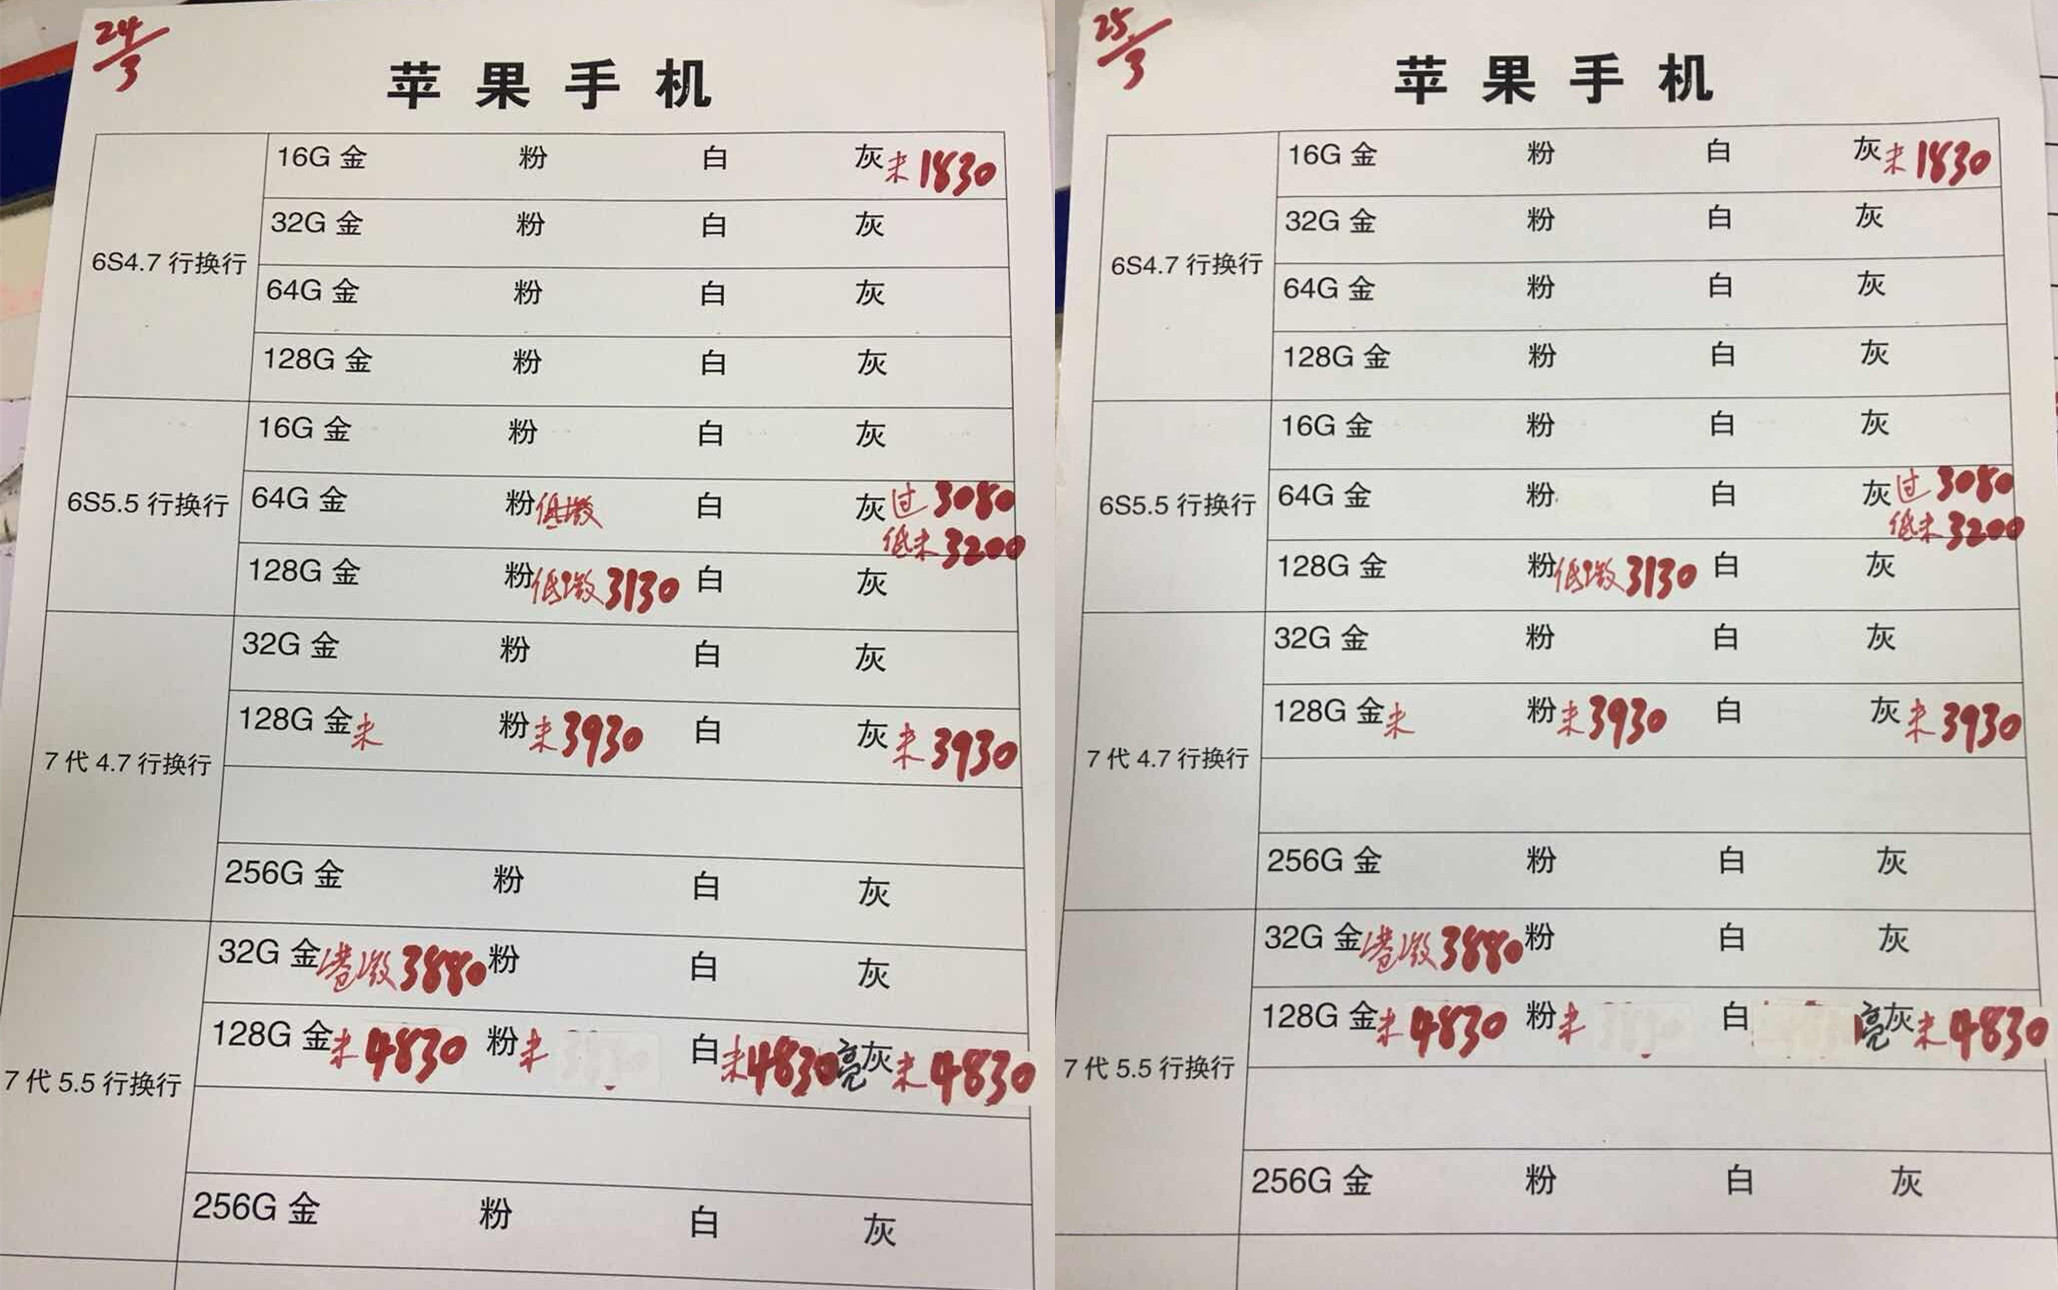 24/3
苹果手机
6S4.7 行换行
16G 金 粉 白 灰 未 1830
32G 金 粉 白 灰
64G 金 粉 白 灰
128G 金 粉 白 灰
6S5.5 行换行
16G 金 粉 白 灰
64G 金 粉 低激 白 灰 过 3080
低未 3200
128G 金 粉 低激 3130 白 灰
7 代 4.7 行换行
32G 金 粉 白 灰
128G 金 未 粉 未 3930 白 灰 未 3930
256G 金 粉 白 灰
7 代 5.5 行换行
32G 金 港激 3880 粉 白 灰
128G 金 未 4830 粉 未 白 未 4830 亮 灰 未 4830
256G 金 粉 白 灰
25/3
苹果手机
6S4.7 行换行
16G 金 粉 白 灰 未 1830
32G 金 粉 白 灰
64G 金 粉 白 灰
128G 金 粉 白 灰
6S5.5 行换行
16G 金 粉 白 灰
64G 金 粉 白 灰 过 3080
低未 3200
128G 金 粉 低激 3130 白 灰
7 代 4.7 行换行
32G 金 粉 白 灰
128G 金 未 粉 未 3930 白 灰 未 3930
256G 金 粉 白 灰
7 代 5.5 行换行
32G 金 港激 3880 粉 白 灰
128G 金 未 4830 粉 未 白 亮 灰 未 4830
256G 金 粉 白 灰